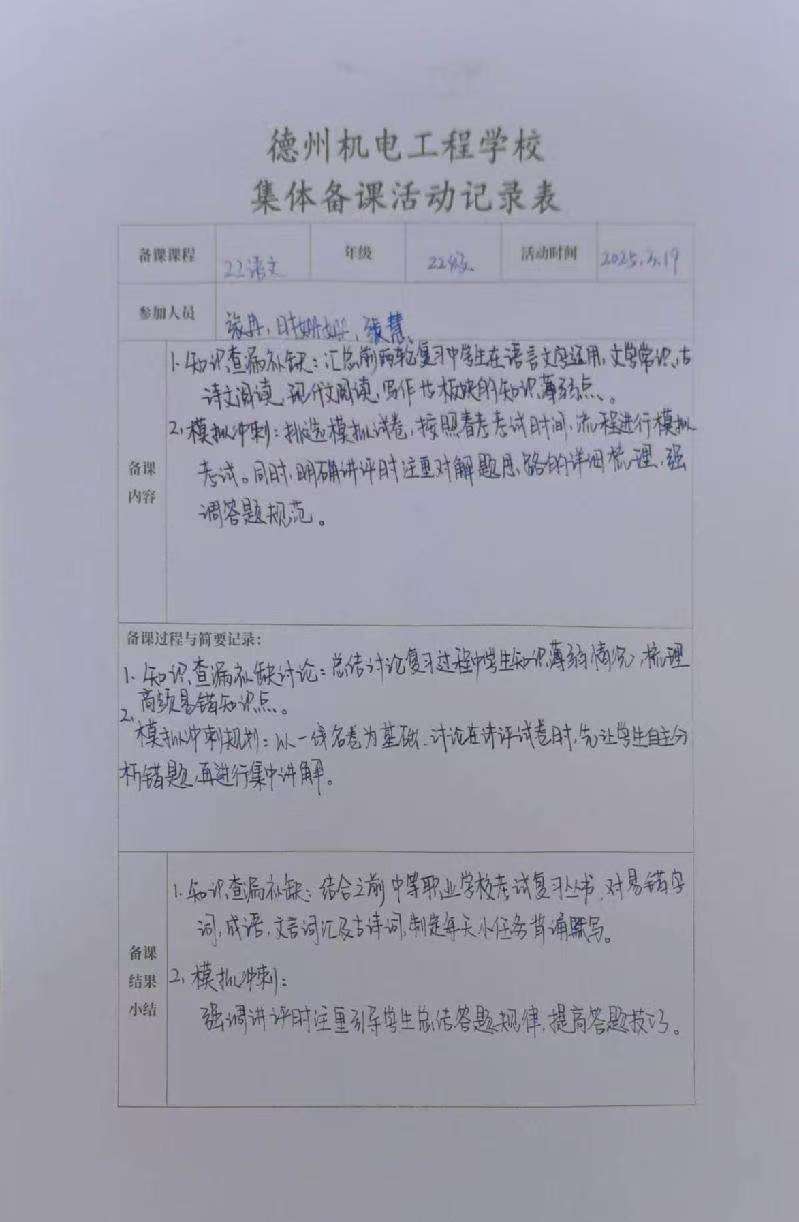 德州机电工程学校
集体备课活动记录表
备课课程 22语文 年级 22级 活动时间 2025.3.19
参加人员 张丹, 时妍妍, 张慧
备课内容
1. 知识查漏补缺：汇总前两轮复习中学生在语言文字运用，文学常识，古
诗文阅读，现代文阅读，写作 板块的知识薄弱点、。
2. 模拟冲刺：挑选模拟试卷，按照春考考试时间，流程进行模拟
考试。同时，明确讲评时注重对解题思路的详细梳理，强
调答题规范。
备课过程与简要记录：
1. 知识查漏补缺讨论：总结讨论复习过程中学生知识薄弱情况，梳理
高频易错知识点。
2.
模拟冲刺规划：以一 名卷为基础，讨论在讲评试卷时，先让学生自主分
析错题，再进行集中讲解。
备课结果小结
1. 知识查漏补缺：结合之前中等职业学校考试复习丛书，对易错字
词，成语，文言词汇及古诗词，制定每天小任务背诵默写。
2. 模拟冲刺：
强调讲评时注重引导学生总结答题规律，提高答题技巧。